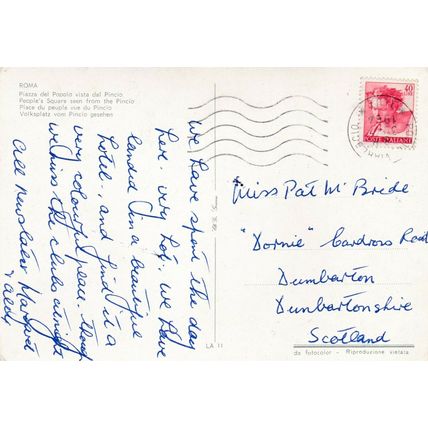 ROMA
Piazza del Popolo vista dal Pincio
People's Square seen from the Pincio
Place du peuple vue du Pincio
Volksplatz vom Pincio gesehen
We have spent the day
here. very hot. We have
landed in a beautiful
hotel. and find it a
very colourful place.
we miss the clubs
All News later Margaret
40
POSTE ITALIANE
Miss Pat McBride
"Dornie" Cardross Road
Dumbarton
Dunbartonshire
Scotland
LA 11
da fotocolor - Riproduzione vietata